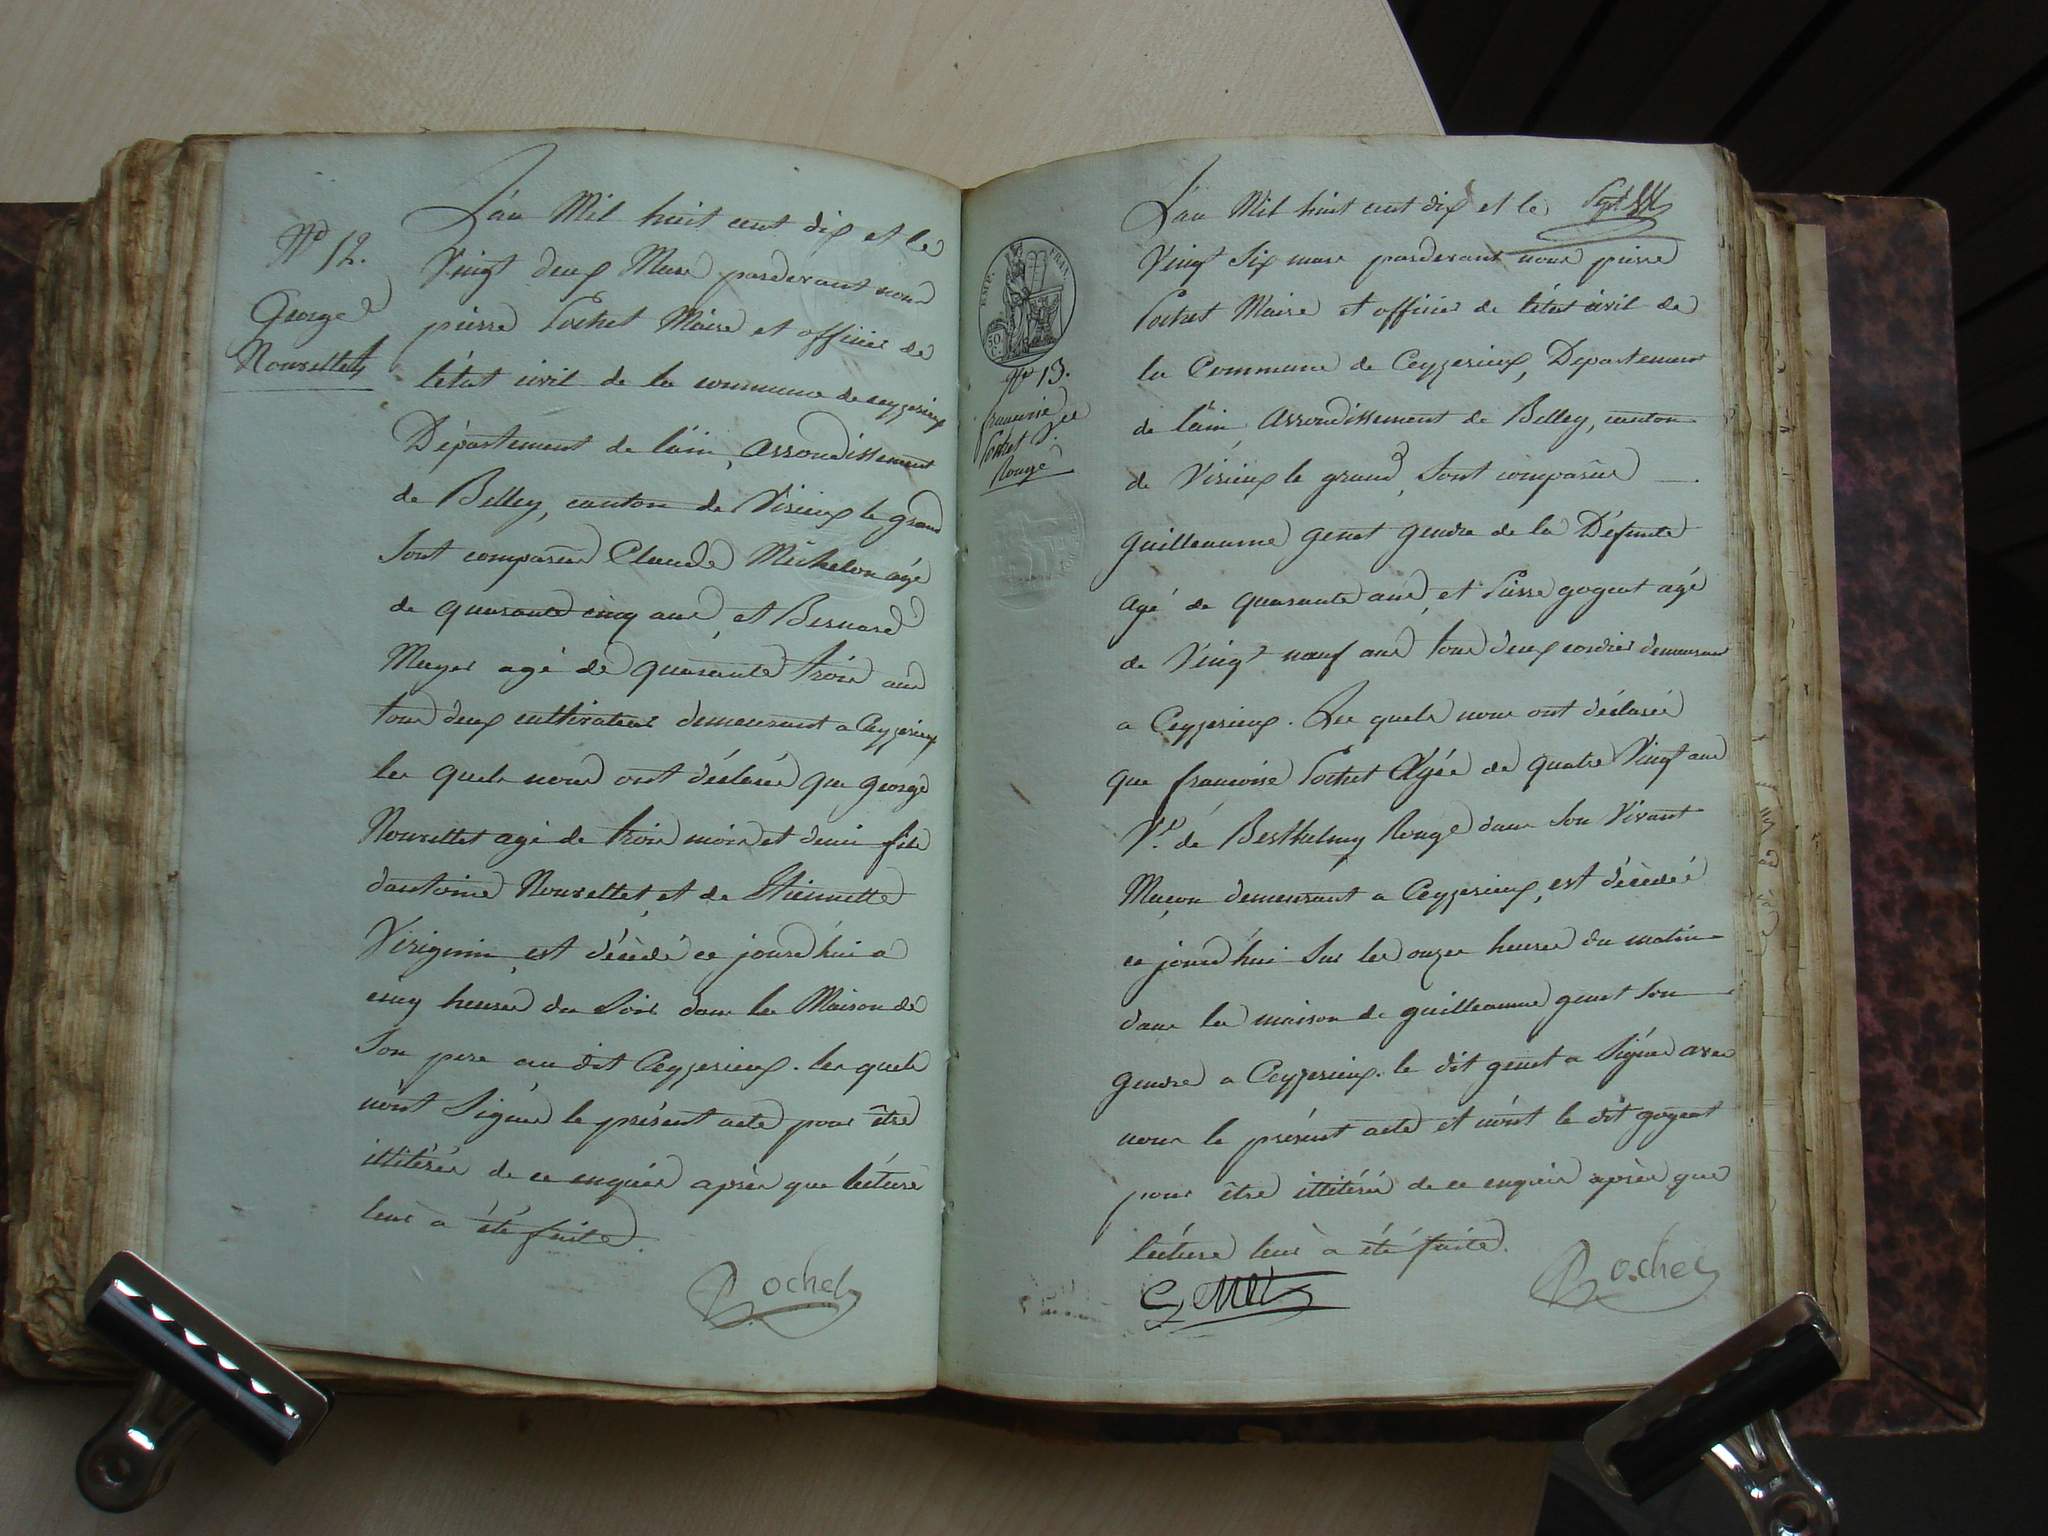 N° 12.
George
Nourettet
L'an Mil huit cent dix et le
Vingt deux Mars pardevant nous
pierre Pochet Maire et officier de
l'état civil de la commune de ceyzerieux
Département de l'ain, arrondissement
de Belley, canton de Virieux le grand
Sont comparus Claude Michelon agé
de quarante cinq ans, et Bernard
Meyer agé de quarante trois ans
tous deux cultivateurs demeurant a Ceyzerieux
les quels nous ont déclaré que George
Nourettet agé de trois mois et demi fils
d'antoine Nourettet, et de Etiennette
Virignin, est décédé ce jourd'hui a
cinq heures du Soir dans la Maison de
Son pere au dit Ceyzerieux. les quels
n'ont Signé le présent acte pour être
illitérés de ce enquis après que lécture
leur a été faite.
Pochet
EMP. FRAN.
50
N° 13.
francoise
Pochet V.e
Rouge
L'an Mil huit cent dix et le
Vingt Six mars pardevant nous pierre
Pochet Maire et officier de l'état civil de
la Commune de Ceyzerieux, Département
de l'ain arrondissement de Belley, canton
de Virieux le grand, Sont comparus
guilleaume genet gendre de la Défunte
agé de quarante ans, et Pierre gogeat agé
de Vingt neuf ans tous deux cordier demeurant
a Ceyzerieux. Les quels nous ont déclaré
que francoise Pochet Agée de quatre Vingt ans
V.e de Berthelmy Rouge dans Son Vivant
Maçon demeurant a Ceyzerieux, est décédé
ce jourd'hui Sur les onze heures du matin
dans la maison de guilleaume genet Son
gendre a Ceyzerieux. le dit genet a Signé avec
nous le présent acte et n'ont le dit gogeat
pour être illitéré de ce enquis après que
lécture leur a été faite.
Pochet